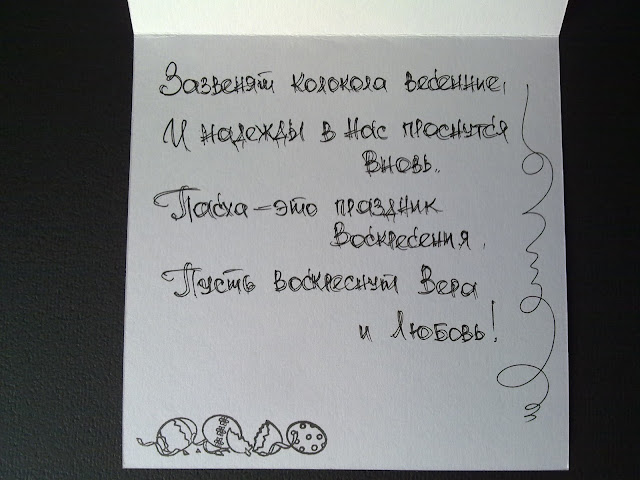 Зазвенят колокола весенние,
И надежды в нас проснутся
вновь..
Пасха – это праздник
Воскресения.
Пусть воскреснут Вера
и Любовь!